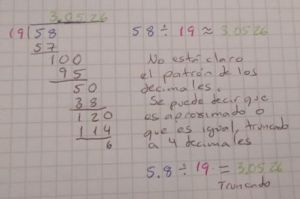 3.0526
19 58
57
100
95
50
38
120
114
6
58 ÷ 19 ≈ 3.0526
No está claro
el patrón de los
decimales.
Se puede decir que
es aproximado o
que es igual, truncado
a 4 decimales
5.8 ÷ 19 = 3.0526
Truncado